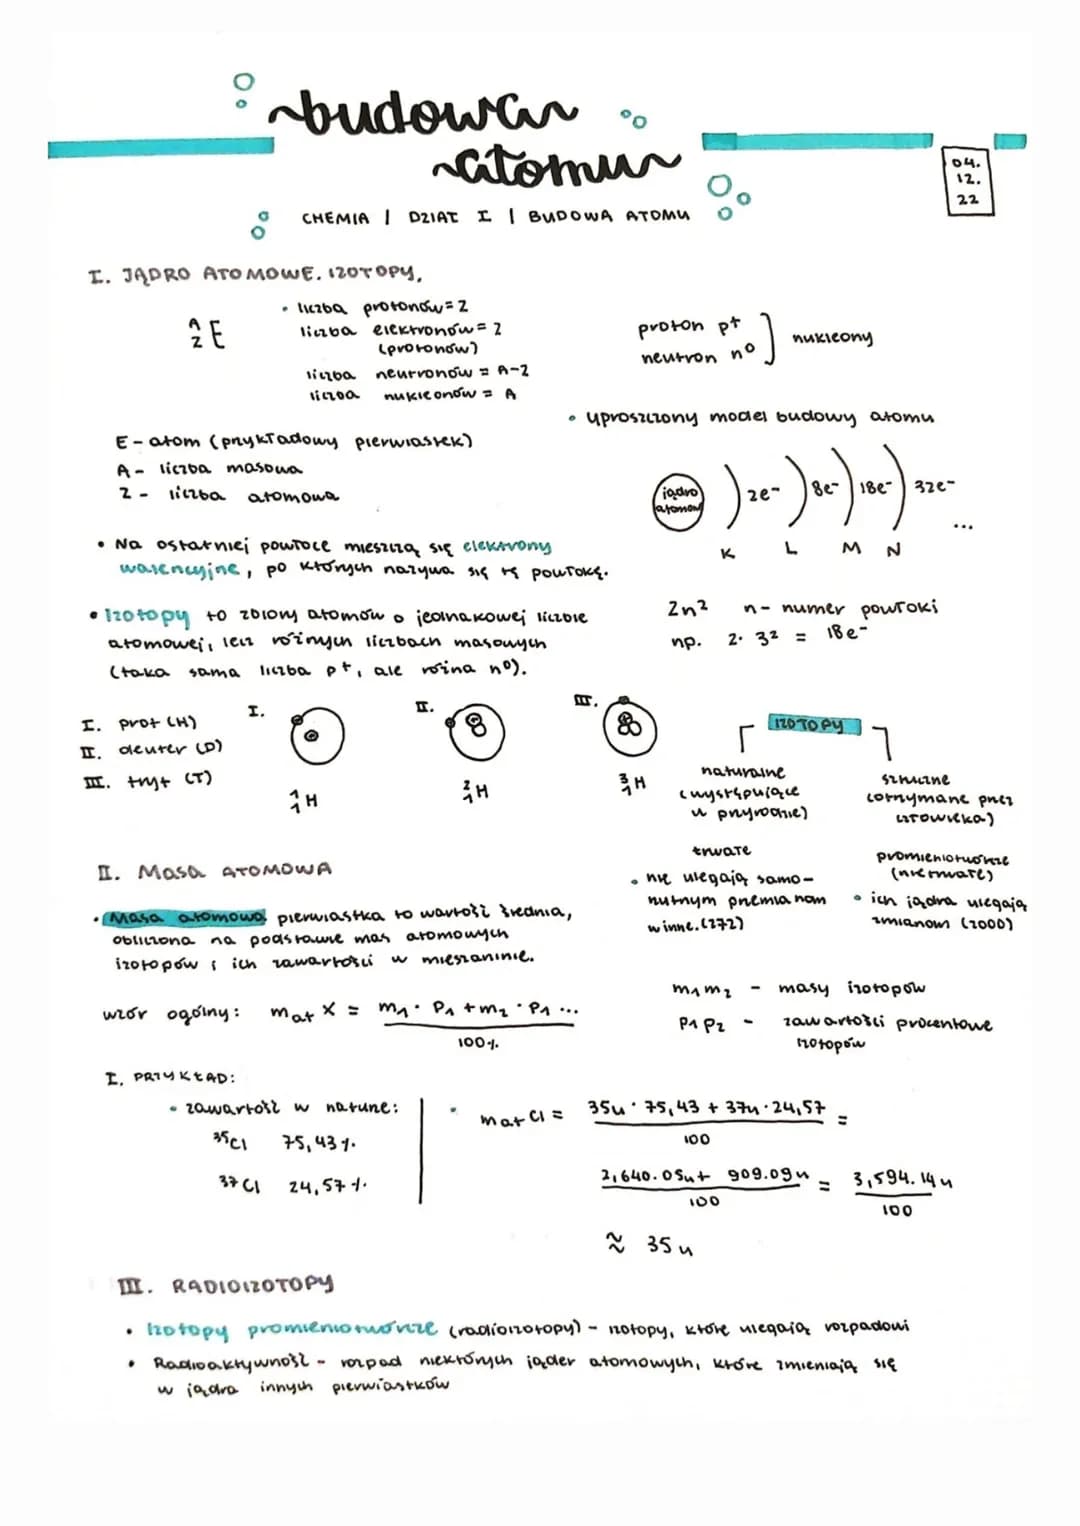 budowa
atomu
04.
12.
22
CHEMIA | DZIAŁ I | BUDOWA ATOMU
I. JĄDRO ATOMOWE. IZOTOPY.
A
Z E
• liczba protonów = Z
liczba elektronów = Z
(protonów)
liczba neutronów = A-Z
liczba nukleonów = A
proton p⁺
neutron n⁰
nukleony
E - atom (przykładowy pierwiastek)
A - liczba masowa
Z - liczba atomowa
• uproszczony model budowy atomu
jądro
atomowe
2e⁻ 8e⁻ 18e⁻ 32e⁻
...
K L M N
• Na ostatniej powłoce mieszczą się elektrony
walencyjne, po których nazywa się tę powłokę.
2n² n - numer powłoki
np. 2·3² = 18e⁻
• Izotopy to zbiory atomów o jednakowej liczbie
atomowej, lecz różnych liczbach masowych
(taka sama liczba p⁺, ale różna n⁰).
I. prot (H)
II. deuter (D)
III. tryt (T)
I. II. III.
¹₁H ²₁H ³₁H
IZOTOPY
naturalne
(występujące
w przyrodzie)
trwałe
• nie ulegają samo-
rzutnym przemianom
w inne. (272)
sztuczne
(otrzymane przez
człowieka)
promieniotwórcze
(nietrwałe)
• ich jądra ulegają
zmianom (2000)
II. Masa ATOMOWA
• Masa atomowa pierwiastka to wartość średnia,
obliczona na podstawie mas atomowych
izotopów i ich zawartości w mieszaninie.
wzór ogólny: mat X = m₁ · P₁ + m₂ · P₁ ...
100%
m₁ m₂ - masy izotopów
P₁ P₂ - zawartości procentowe
izotopów
I. PRZYKŁAD:
• zawartość w naturze:
³⁵Cl 75,43%.
³⁷Cl 24,57%.
• mat Cl = 35u · 75,43 + 37u · 24,57 =
100
2,640.05u + 909.09u = 3,594.14u
100 100
≈ 35u
III. RADIOIZOTOPY
• Izotopy promieniotwórcze (radioizotopy) - izotopy, które ulegają rozpadowi
• Radioaktywność - rozpad niektórych jąder atomowych, które zmieniają się
w jądra innych pierwiastków